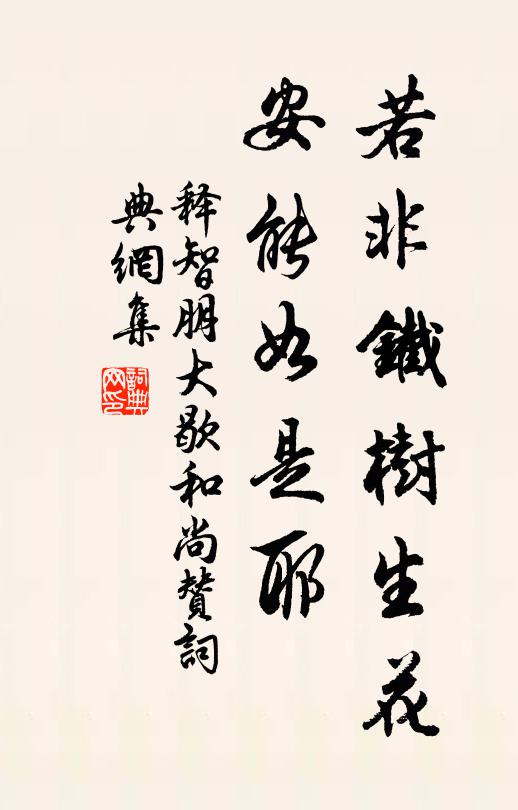 若非鐵樹生花
安能如是耶
释智朋大歇和尚贊詞
典網集
詞典网印